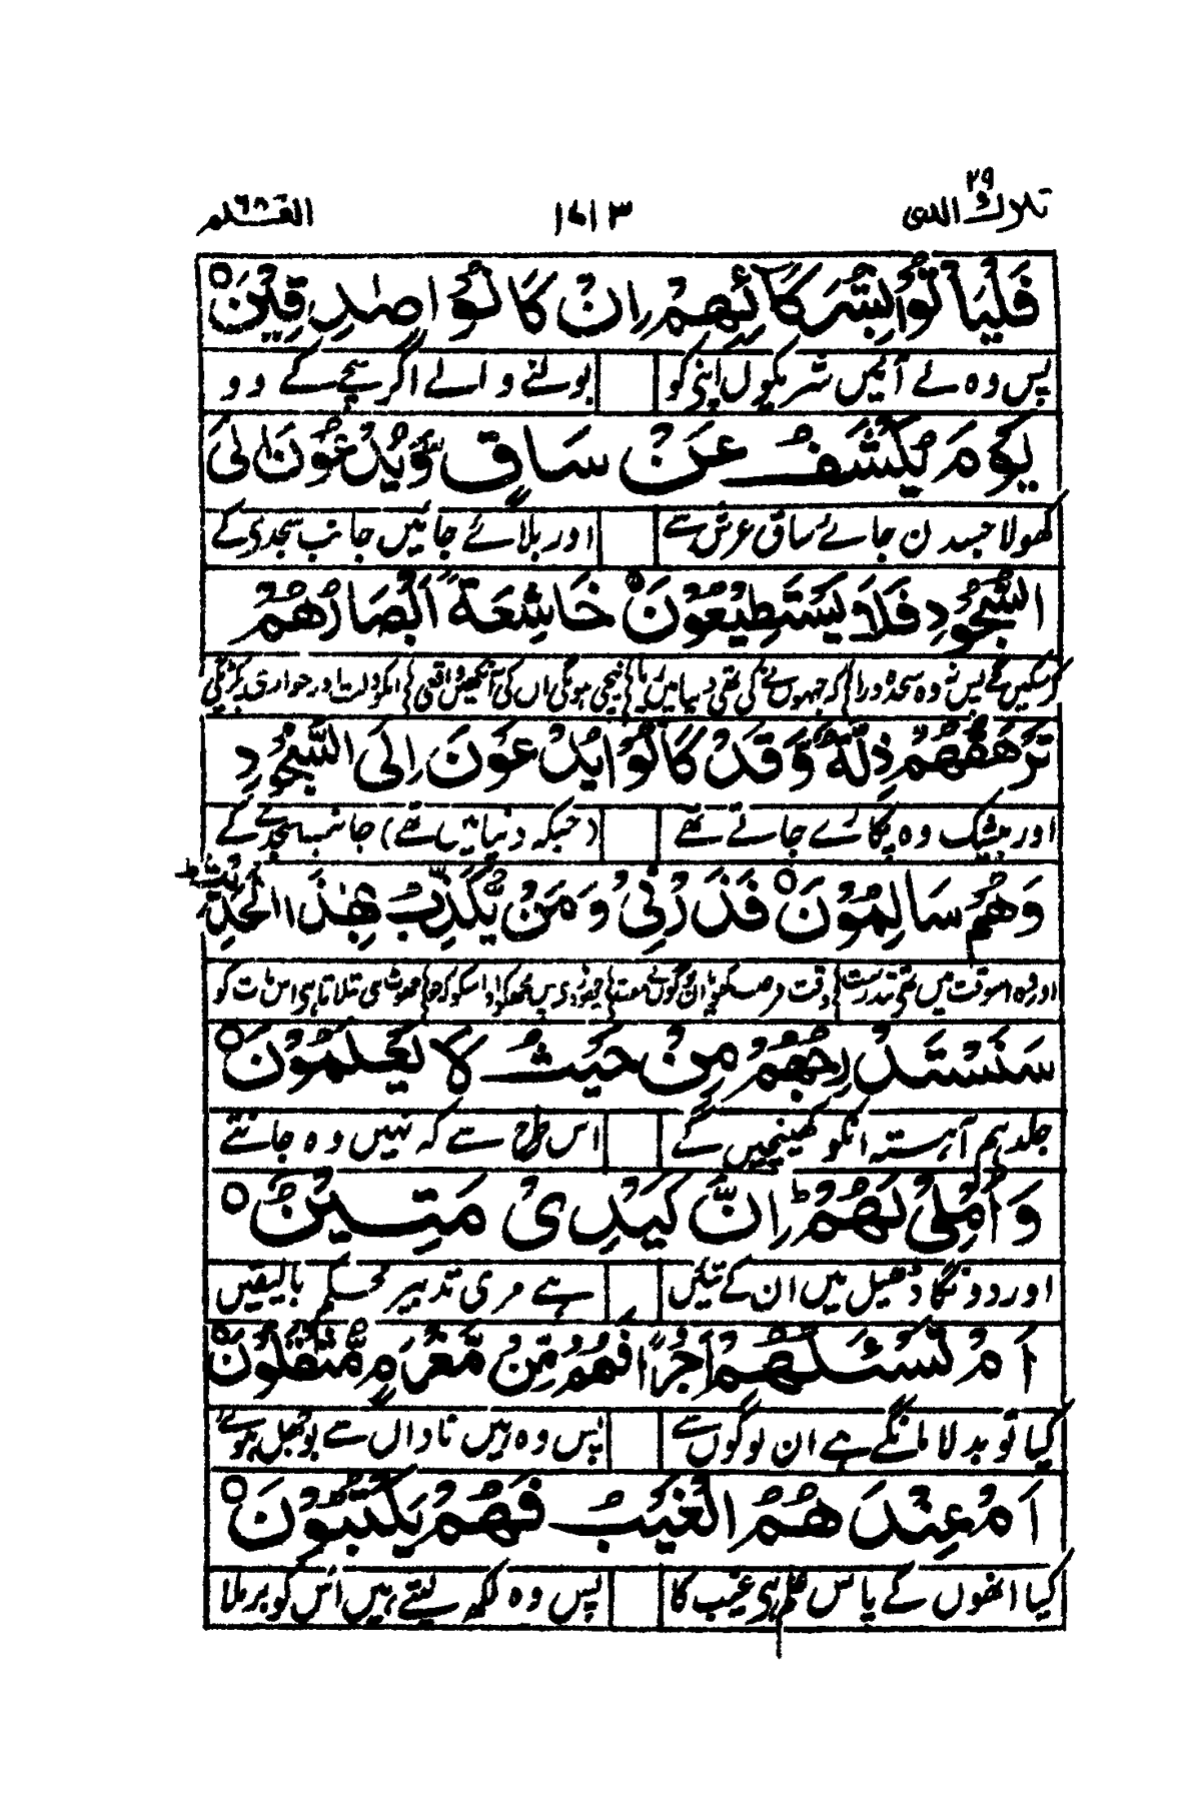 تبارك الذی ۲۹ ۱۷۱۳ القلم ۶۸
فَلْيَأْتُوْا بِشُرَكَآئِهِمْ اِنْ كَانُوْا صٰدِقِيْنَ ○
پس وہ لے آئیں شریکوں اپنی کو بولنے والے اگر سچے کے وو
يَوْمَ يُكْشَفُ عَنْ سَاقٍ وَّيُدْعَوْنَ اِلَى
کھولا جسدن جائے ساق عرش سے اور بلائے جائیں جانب سجدی کے
السُّجُوْدِ فَلَا يَسْتَطِيْعُوْنَ ○ خَاشِعَةً اَبْصَارُهُمْ
کرسکیں گے پس نہ وہ سجدہ ذرا کہ جنہوں نے کی تھی دنیا میں نیچی ہونگی اں کی آنکھیں واقعی انکو ذلت اور خواری
تَرْهَقُهُمْ ذِلَّةٌ وَقَدْ كَانُوْا يُدْعَوْنَ اِلَى السُّجُوْدِ
اور بیشک وہ پکارے جاتے تھے (جبکہ دنیا میں تھے) جانب سجدے کے
وَهُمْ سَالِمُوْنَ ○ فَذَرْنِىْ وَمَنْ يُّكَذِّبُ بِهٰذَا الْحَدِيْثِ ط
اور وہ اسوقت میں تھی تندرست وقت فرصت ان لوگوں نے مفت چھوڑدی پس مجھکو اور اسکو کہ جو جھوٹ ہی بتلاتا ہی اس بات کو
سَنَسْتَدْرِجُهُمْ مِنْ حَيْثُ لَا يَعْلَمُوْنَ ○
جلد ہم آہستہ انکو کھینچیں گے اس طرح سے کہ نہیں وہ جانتے
وَاُمْلِىْ لَهُمْ ط اِنَّ كَيْدِىْ مَتِيْنٌ ○
اور دونگا ڈھیل میں ان کے تئیں ہے مری تدبیر محکم بالیقیں
اَمْ تَسْئَلُهُمْ اَجْرًا فَهُمْ مِّنْ مَّغْرَمٍ مُّثْقَلُوْنَ ○
کیا تو بدلا مانگے ہے ان لوگوں سے پس وہ ہیں تاواں سے بوجھل ہوئے
اَمْ عِنْدَهُمُ الْغَيْبُ فَهُمْ يَكْتُبُوْنَ ○
کیا انھوں کے پاس علم ہی غیب کا پس وہ لکھ لیتے ہیں اس کو برملا